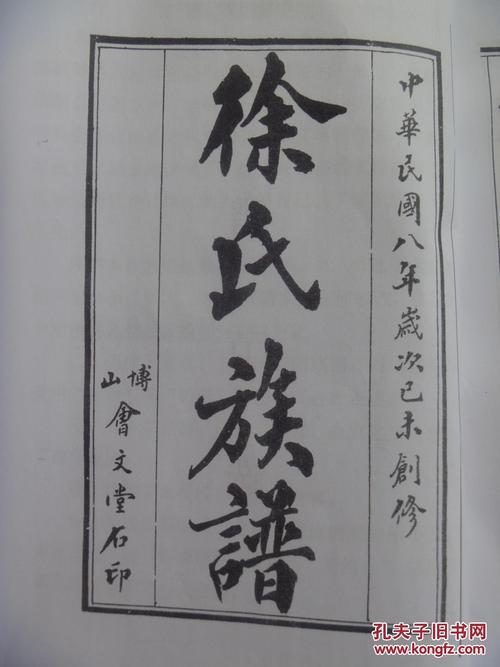 中華民國八年歲次己未創修
徐氏族譜
博山會文堂石印
孔夫子旧书网
kongfz.com